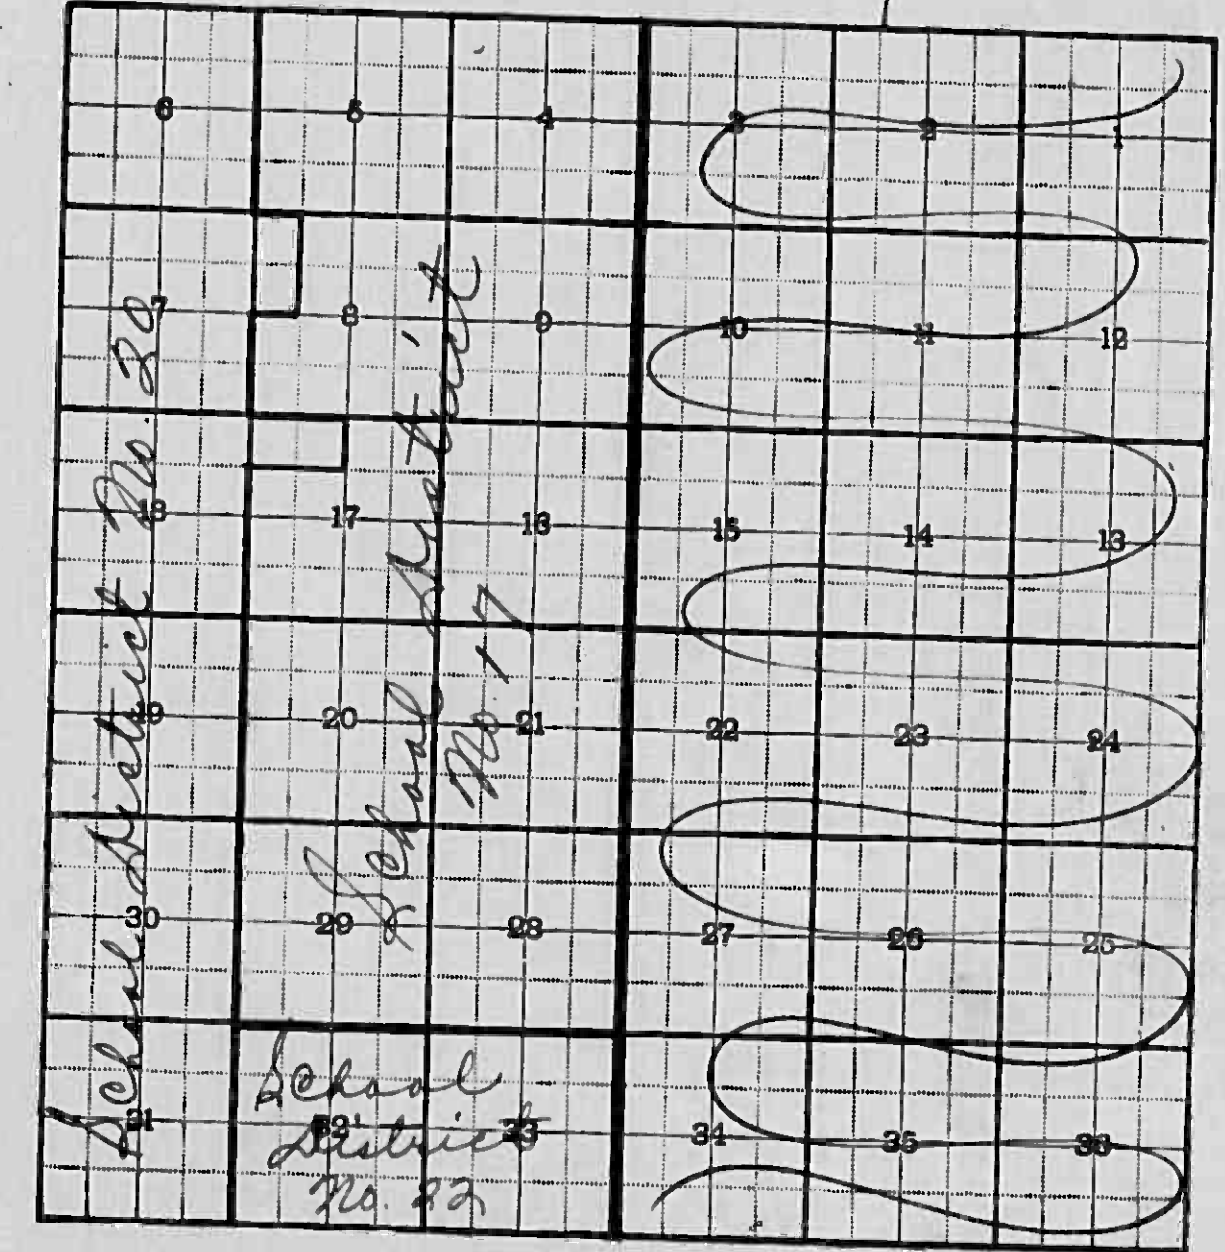 6 5 4 3 2 1
7 8 9 10 11 12
18 17 16 15 14 13
19 20 21 22 23 24
30 29 28 27 26 25
31 32 33 34 35 36
School District No. 20
School District
No. 17
School
District
No. 22